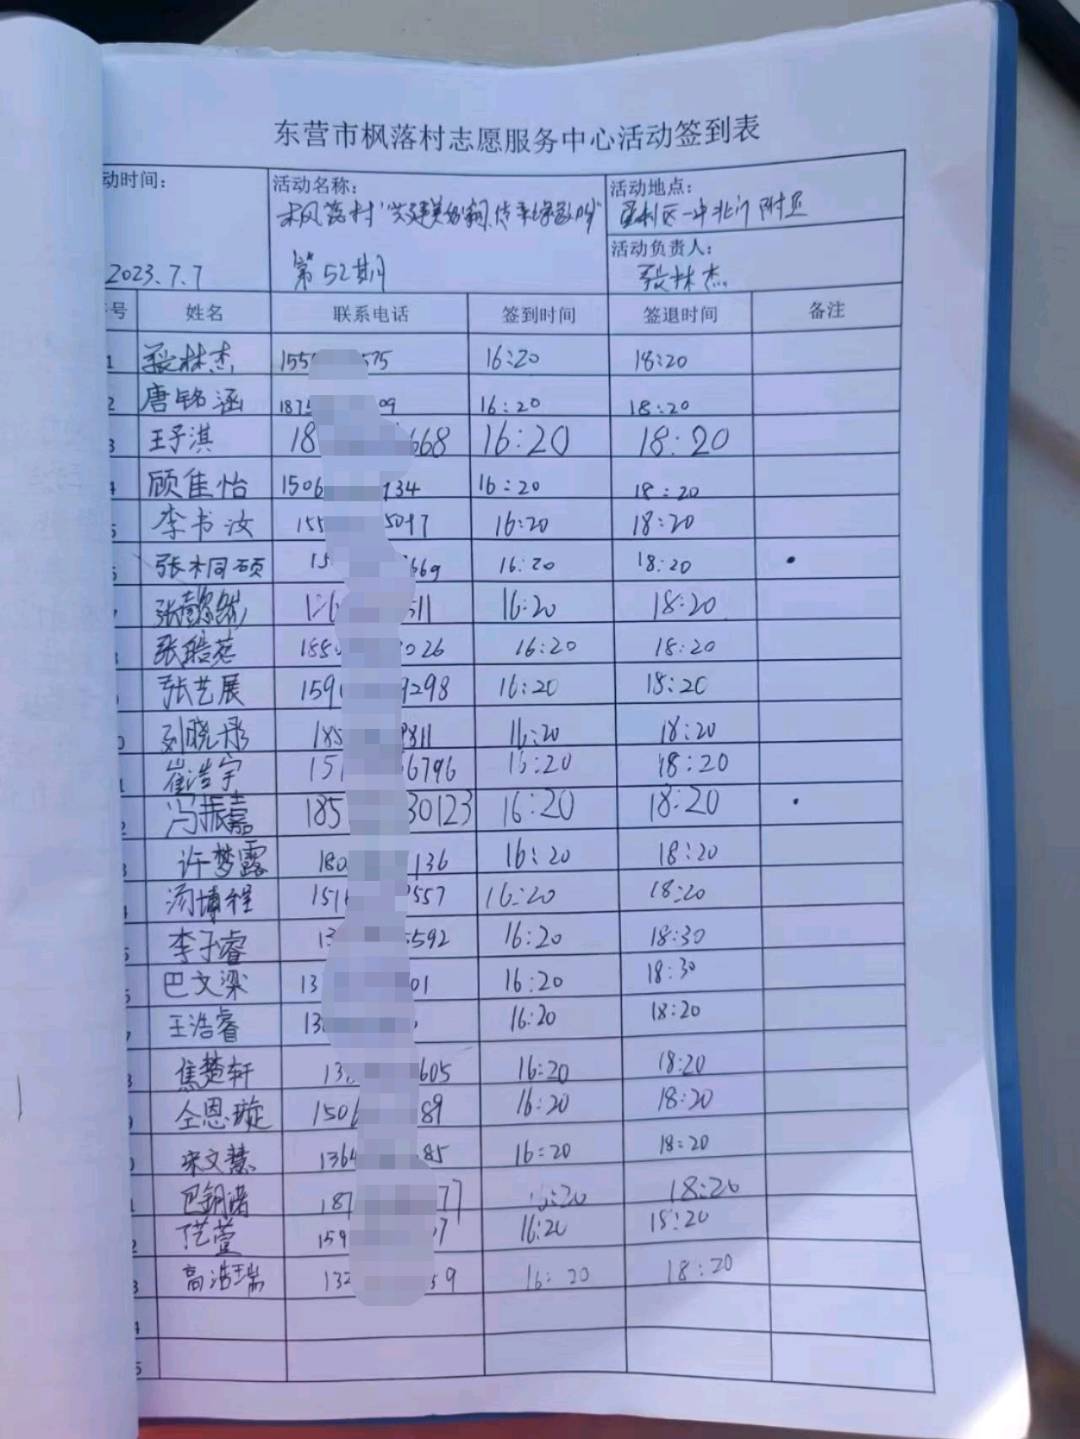 东营市枫落村志愿服务中心活动签到表
动时间： 活动名称： 活动地点：
枫落村 一中北门附近
活动负责人：
2023.7.7 第52期 张林杰
号 姓名 联系电话 签到时间 签退时间 备注
1 张林杰 155 575 16:20 18:20
2 唐铭涵 187 09 16:20 18:20
3 王子淇 18 668 16:20 18:20
4 顾佳怡 1506 934 16:20 18:20
5 李书汝 155 5097 16:20 18:20
6 张桐硕 15 669 16:20 18:20
7 张 511 16:20 18:20
8 张皓 188 026 16:20 18:20
张艺展 159 9298 16:20 18:20
0 刘晓彤 185 9811 16:20 18:20
1 崔浩宇 151 6796 16:20 18:20
2 冯振嘉 185 30123 16:20 18:20
3 许梦露 180 136 16:20 18:20
4 汤博程 151 557 16:20 18:20
5 李子睿 13 5592 16:20 18:30
6 巴文梁 13 01 16:20 18:30
7 王浩睿 13 16:20 18:20
8 焦楚轩 13 605 16:20 18:20
9 仝恩璇 1506 89 16:20 18:20
0 宋文慧 1364 85 16:20 18:20
1 巴 187 77 :20 18:20
2 159 7 16:20 18:20
3 高浩瑞 132 59 16:20 18:20
4
5